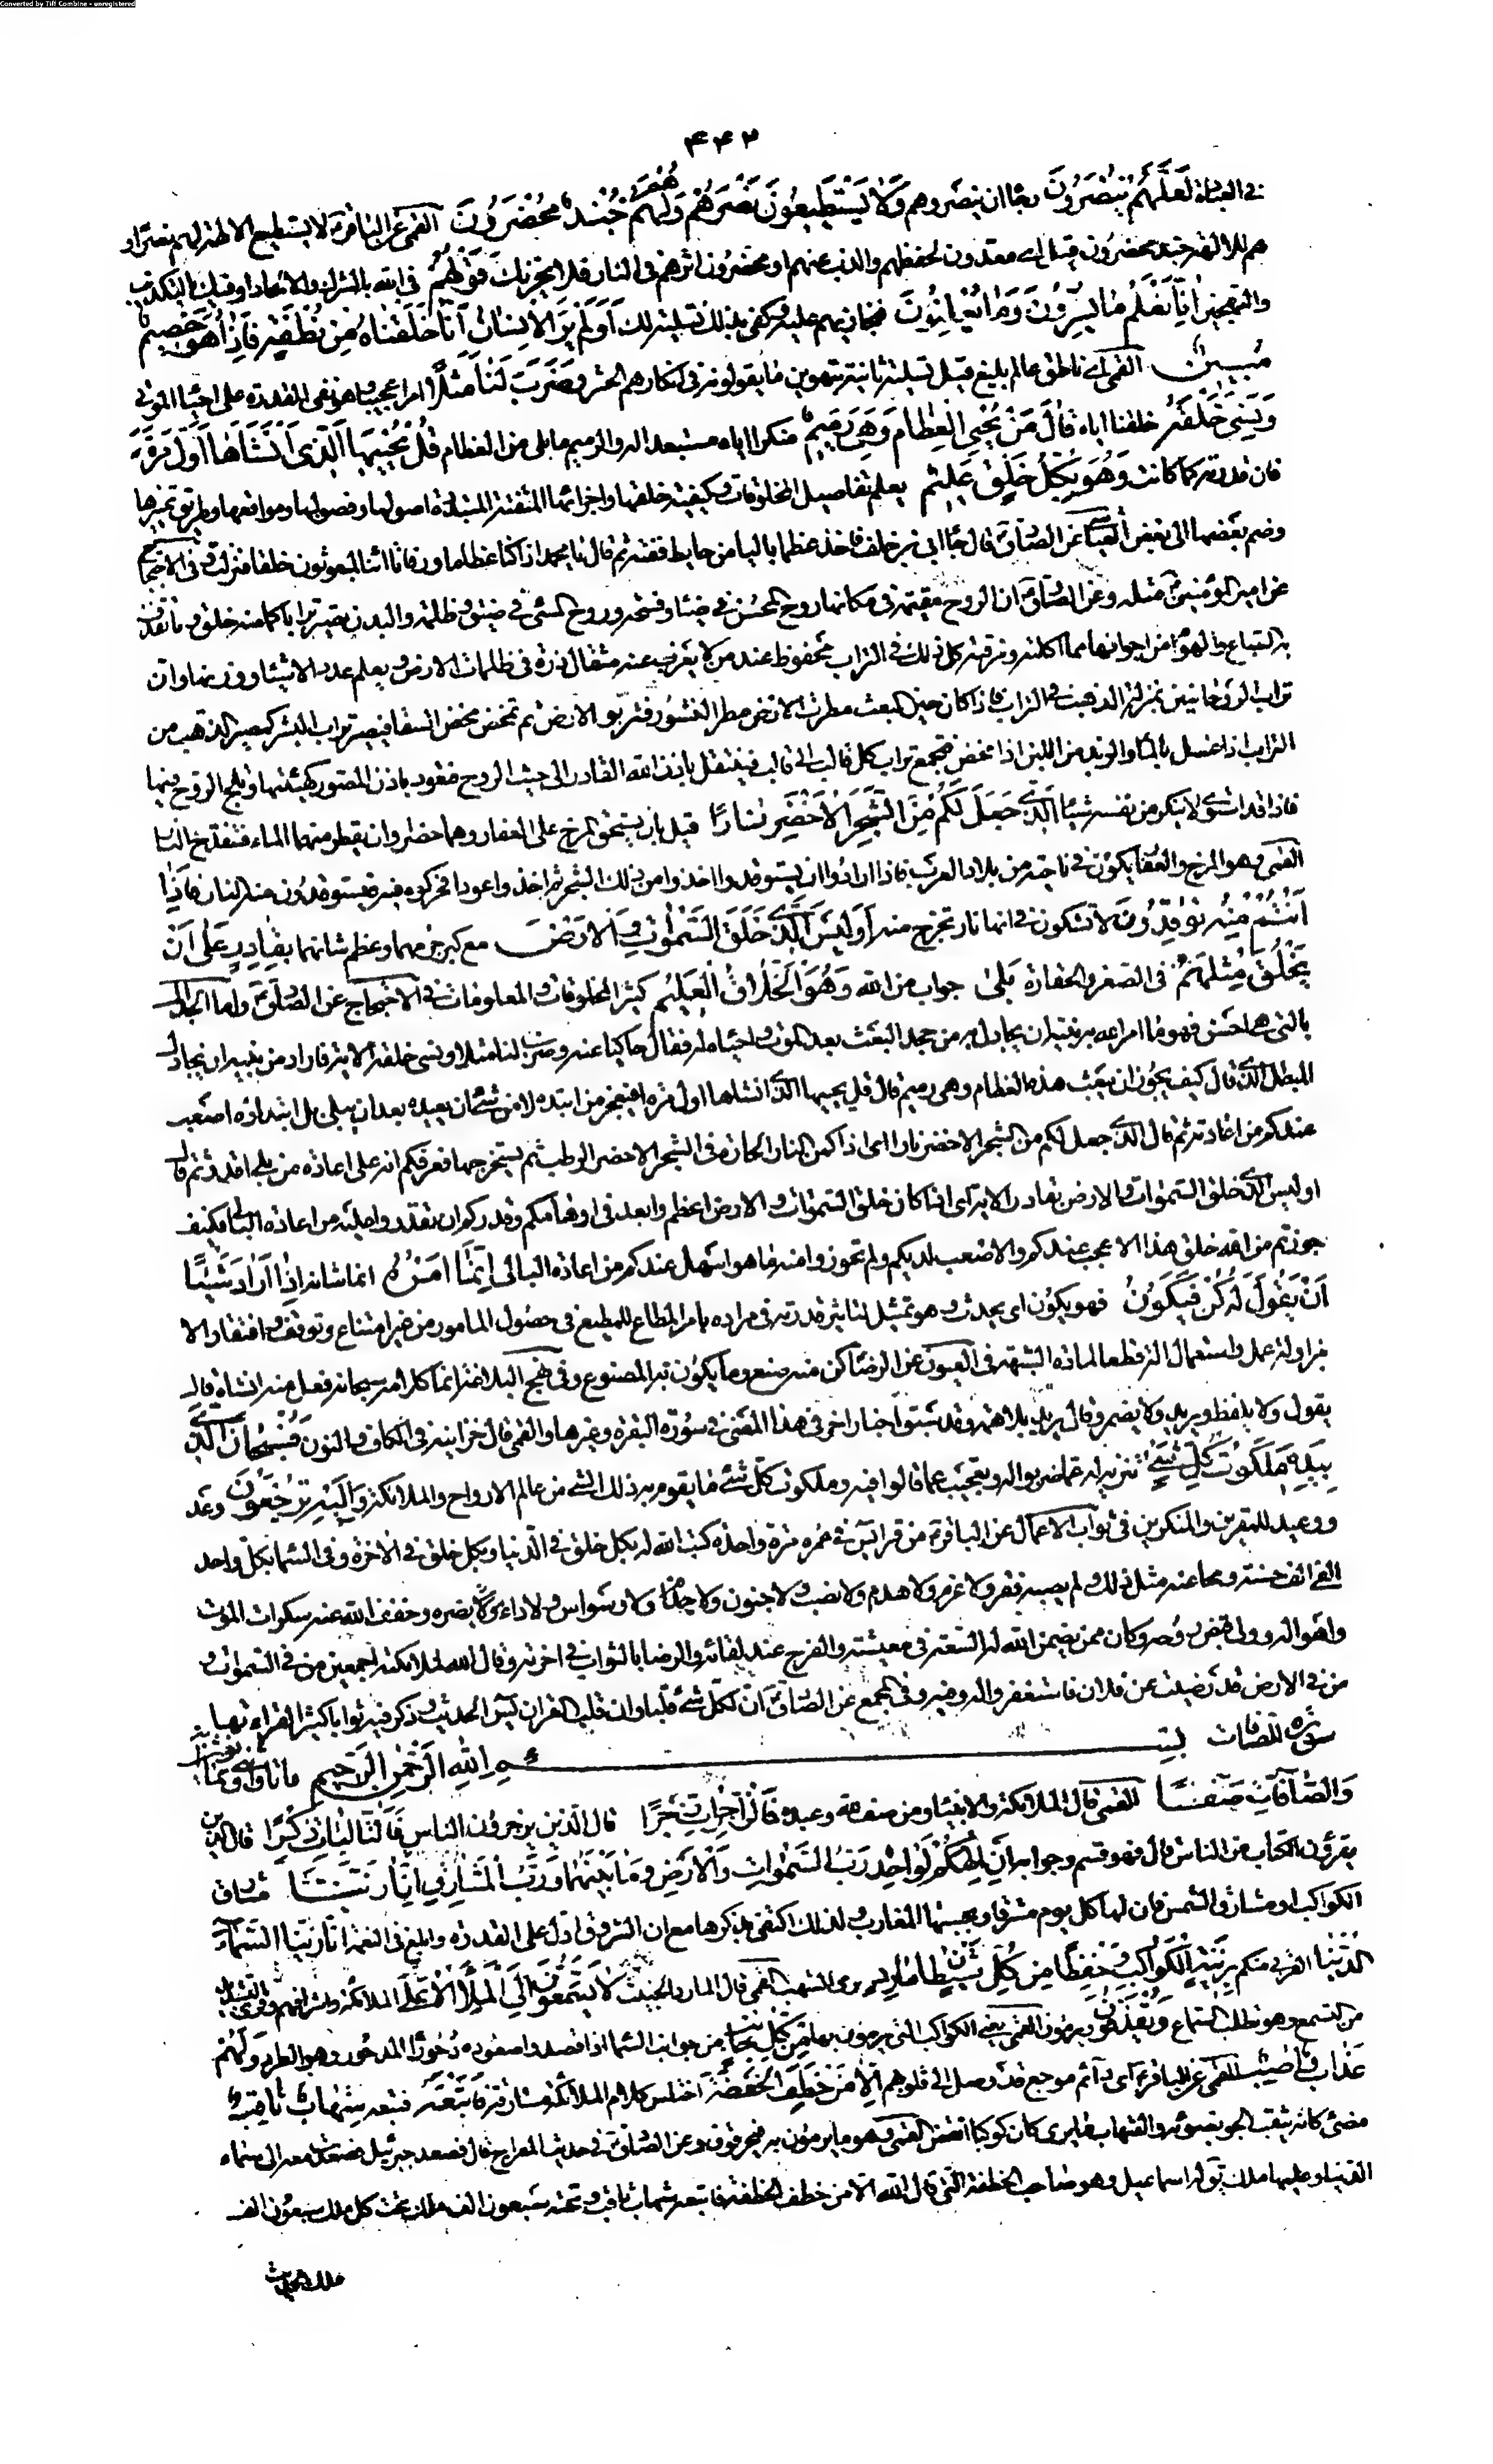 Converted by Tiff Combine - unregistered
۴۴۲
في العبادة لَعَلَّهُمْ يُنْصَرُونَ رجاء ان ينصروهم وَلَا يَسْتَطِيعُونَ نَصْرَهُمْ وَهُمْ لَهُمْ جُنْدٌ مُحْضَرُونَ القمي عن الباقر ع لا يستطيع الالهة لهم نصرا و
هم للالهة جند محضرون قيل اي معدون لحفظهم والذب عنهم او محضرون اثرهم في النار فَلَا يَحْزُنْكَ قَوْلُهُمْ في الله بالشرك والالحاد او فيك بالتكذيب
والتهجين إِنَّا نَعْلَمُ مَا يُسِرُّونَ وَمَا يُعْلِنُونَ فنجازيهم عليه وكفى بذلك تسلية لك أَوَلَمْ يَرَ الْإِنْسَانُ أَنَّا خَلَقْنَاهُ مِنْ نُطْفَةٍ فَإِذَا هُوَ خَصِيمٌ
مُبِينٌ القمي اي ناطق عالم بليغ قيل تسلية ثانية بتهوين ما يقولونه في انكارهم الحشر وَضَرَبَ لَنَا مَثَلًا امرا عجيبا وهو نفي القدرة على احياء الموتى
وَنَسِيَ خَلْقَهُ خلقنا اياه قَالَ مَنْ يُحْيِي الْعِظَامَ وَهِيَ رَمِيمٌ منكرا اياه مستبعدا له والرميم ما بلي من العظام قُلْ يُحْيِيهَا الَّذِي أَنْشَأَهَا أَوَّلَ مَرَّةٍ
فان قدرته كما كانت وَهُوَ بِكُلِّ خَلْقٍ عَلِيمٌ يعلم تفاصيل المخلوقات وكيفية خلقها واجزائها المتفتتة المتبددة اصولها وفصولها ومواقعها وطريق تميزها
وضم بعضها الى بعض العياشي عن الصادق ع قال جاء ابي بن خلف فاخذ عظما باليا من حايط ففته ثم قال يا محمد اذا كنا عظاما ورفاتا ائنا لمبعوثون خلقا فنزلت وفي الاحتجاج
عن امير المؤمنين ع مثله وعن الصادق ع ان الروح مقيمة في مكانها روح المحسن في ضياء وفسحة وروح المسيء في ضيق وظلمة والبدن يصير ترابا كما منه خلق وما تقذف
به السباع والهوام من اجوافها مما اكلته ومزقته كل ذلك في التراب محفوظ عند من لا يعزب عنه مثقال ذرة في ظلمات الارض ويعلم عدد الاشياء ووزنها وان
تراب الروحانيين بمنزلة الذهب في التراب فاذا كان حين البعث مطرت الارض مطر النشور فتربو الارض ثم تمخض مخض السقا فيصير تراب البشر كمصير الذهب من
التراب اذا غسل بالماء والزبد من اللبن اذا مخض فيجمع تراب كل قالب الى قالبه فينتقل باذن الله القادر الى حيث الروح فتعود باذن المصور كهيئتها وتلج الروح فيها
فاذا قد استوى لا ينكر من نفسه شيئا الَّذِي جَعَلَ لَكُمْ مِنَ الشَّجَرِ الْأَخْضَرِ نَارًا قيل بان يسحق المرخ على العفار وهما خضراوان يقطر منهما الماء فتنقدح النار
القمي وهو المرخ والعفار يكون في ناحية من بلاد العرب فاذا ارادوا ان يستوقدوا اخذوا من ذلك الشجر ثم اخذوا عودا فحركوه فيه فيستوقدون منه النار فَإِذَا
أَنْتُمْ مِنْهُ تُوقِدُونَ لا تشكون في انها نار تخرج منه أَوَلَيْسَ الَّذِي خَلَقَ السَّمٰوَاتِ وَالْأَرْضَ مع كبر جرمهما وعظم شانهما بِقَادِرٍ عَلَى أَنْ
يَخْلُقَ مِثْلَهُمْ في الصغر والحقارة بَلَى جواب من الله وَهُوَ الْخَلَّاقُ الْعَلِيمُ كثير المخلوقات والمعلومات في الاحتجاج عن الصادق ع واما الجدال
بالتي هي احسن فهو ما امر الله به نبيه ان يجادل به من جحد البعث بعد الموت واحياءه له فقال حاكيا عنه وضرب لنا مثلا ونسي خلقه الاية فاراد من نبيه ان يجادل
المبطل الذي قال كيف يجوز ان يبعث هذه العظام وهي رميم قال قل يحييها الذي انشاها اول مرة افيعجز من ابتدء لا من شئ ان يعيده بعد ان يبلى بل ابتداؤه اصعب
عندكم من اعادته ثم قال الذي جعل لكم من الشجر الاخضر نارا اي اذا كمن النار الحارة في الشجر الاخضر الرطب ثم يستخرجها فعرفكم انه على اعادة من بلي اقدر ثم قال
اوليس الذي خلق السموات والارض بقادر الاية اي اذا كان خلق السموات والارض اعظم وابعد في اوهامكم وقدركم ان تقدروا عليه من اعادة البالي فكيف
جوزتم من الله خلق هذا الاعجب عندكم والاصعب لديكم ولم تجوزوا منه ما هو اسهل عندكم من اعادة البالي إِنَّمَا أَمْرُهُ انما شانه إِذَا أَرَادَ شَيْئًا
أَنْ يَقُولَ لَهُ كُنْ فَيَكُونُ فهو يكون اي يحدث وهو تمثيل لتاثير قدرته في مراده بامر المطاع للمطيع في حصول المامور من غير امتناع وتوقف وافتقار الى
مزاولة عمل واستعمال آلة قطعا لمادة الشبهة في العيون عن الرضا ع كن منه صنع وما يكون به المصنوع وفي نهج البلاغة انما كلامه سبحانه فعل منه انشاه قال
يقول ولا يلفظ ويريد ولا يضمر وقال يريد بلا همة وقد سبق اخبار اخر في هذا المعنى في سورة البقرة وغيرها والقمي قال خزاينه في الكاف والنون فَسُبْحَانَ الَّذِي
بِيَدِهِ مَلَكُوتُ كُلِّ شَيْءٍ تنزيه له عما ضربوا له وتعجيب عما قالوا فيه وملكوت كل شئ ما يقوم به ذلك الشئ من عالم الارواح والملائكة وَإِلَيْهِ تُرْجَعُونَ وعد
ووعيد للمقرين والمنكرين في ثواب الاعمال عن الباقر ع من قرا يس في عمره مرة واحدة كتب الله له بكل خلق في الدنيا وبكل خلق في الاخرة وفي السماء بكل واحد
الفي الف حسنة ومحا عنه مثل ذلك ولم يصبه فقر ولا غرم ولا هدم ولا نصب ولا جنون ولا جذام ولا وسواس ولا داء يضره وخفف الله عنه سكرات الموت
واهواله وولي قبض روحه وكان ممن يضمن الله له السعة في معيشته والفرح عند لقائه والرضا بالثواب في اخرته وقال الله لملائكته اجمعين من في السموات و
من في الارض قد رضيت عن فلان فاستغفروا له وفيه وفي المجمع عن الصادق ع ان لكل شئ قلبا وان قلب القران يس الحديث وذكر فيه ثوابا كثيرا لقراءتها
سورة الصافات بسم الله الرحمن الرحيم
وَالصَّافَّاتِ صَفًّا القمي قال الملائكة والانبياء ومن صف لله وعبده فَالزَّاجِرَاتِ زَجْرًا قال الذين يزجرون الناس فَالتَّالِيَاتِ ذِكْرًا قال الذين
يقرؤن الكتاب من الناس قال فهو قسم وجوابه إِنَّ إِلٰهَكُمْ لَوَاحِدٌ رَبُّ السَّمٰوَاتِ وَالْأَرْضِ وَمَا بَيْنَهُمَا وَرَبُّ الْمَشَارِقِ إِنَّا زَيَّنَّا مشارق
الكواكب او مشارق الشمس فان لها كل يوم مشرقا وبحسبها المغارب ولذلك اكتفى بذكرها مع ان الشروق ادل على القدرة وابلغ في النعمة إِنَّا زَيَّنَّا السَّمَاءَ
الدُّنْيَا القربى منكم بِزِينَةٍ الْكَوَاكِبِ وَحِفْظًا مِنْ كُلِّ شَيْطَانٍ مَارِدٍ برمي الشهب القمي قال المارد الخبيث لَا يَسَّمَّعُونَ إِلَى الْمَلَإِ الْأَعْلَى الملائكة واشرافهم وقرئ بالتشديد
من التسمع وهو تطلب السماع وَيُقْذَفُونَ ويرمون القمي يعني الكواكب التي يرمون بها مِنْ كُلِّ جَانِبٍ من جوانب السماء اذا قصدوا صعوده دُحُورًا المدحور وهو الطرد وَلَهُمْ
عَذَابٌ وَاصِبٌ القمي عن الباقر ع اي دائم موجع قد وصل الى قلوبهم إِلَّا مَنْ خَطِفَ الْخَطْفَةَ اختلس كلام الملائكة مسارقة فَأَتْبَعَهُ فتبعه شِهَابٌ ثَاقِبٌ
مضئ كانه يثقب الجو بضوئه والشهاب ما يرى كان كوكبا انقض القمي وهو ما يرمون به فيحرقون وعن الصادق ع في حديث المعراج قال فصعد جبرئيل وصعدت معه الى سماء
الدنيا وعليها ملك يقال له اسماعيل وهو صاحب الخطفة التي قال الله الا من خطف الخطفة فاتبعه شهاب ثاقب وتحته سبعون الف ملك تحت كل ملك سبعون الف
ملك الحديث